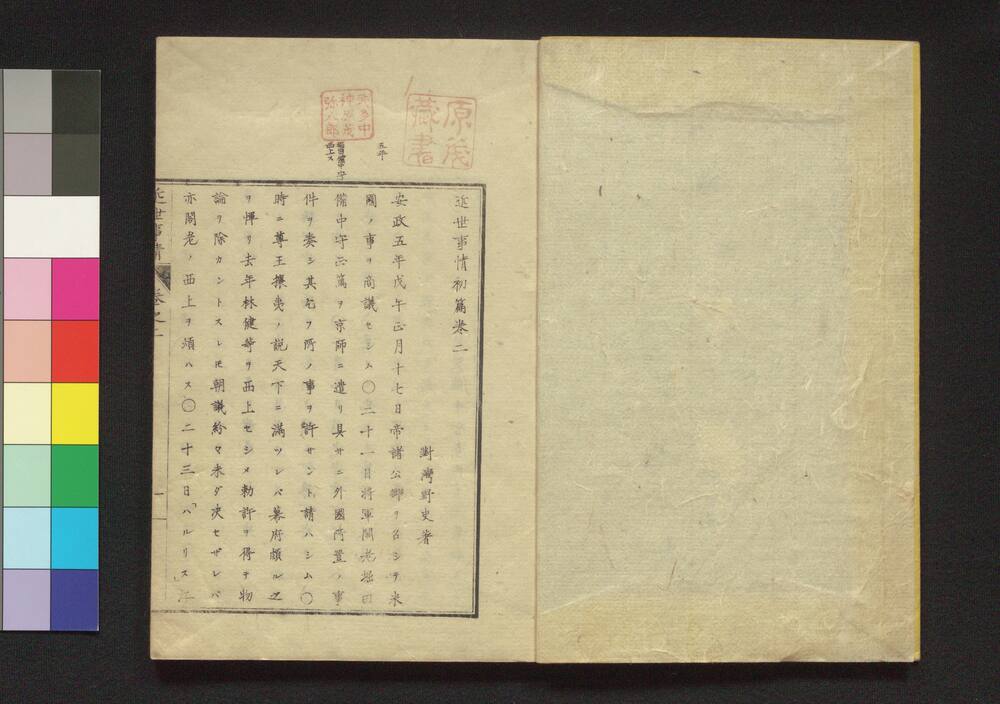 近世事情初篇卷二
對灣野史著
安政五年戊午正月十七日帝諸公卿ヲ召シテ米
國ノ事ヲ商議セシム〇二十一日將軍閣老堀田
備中守正篤ヲ京師ニ遣リ具サニ外國所置ノ事
件ヲ奏シ其乞フ所ノ事ヲ許サント請ハシム〇
時ニ尊王攘夷ノ說天下ニ滿ツレバ幕府頗ル之
ヲ憚リ去年林健等ヲ西上セシメ勅許ヲ得テ物
論ヲ除カントスレ𪜈朝議紛々未ダ決セザレバ
亦閣老ノ西上ヲ煩ハス〇二十三日「ハルリス」江
近世事情
卷之二
一
五年
堀田備中守
西上ス
原茂
藏書
弥八郎